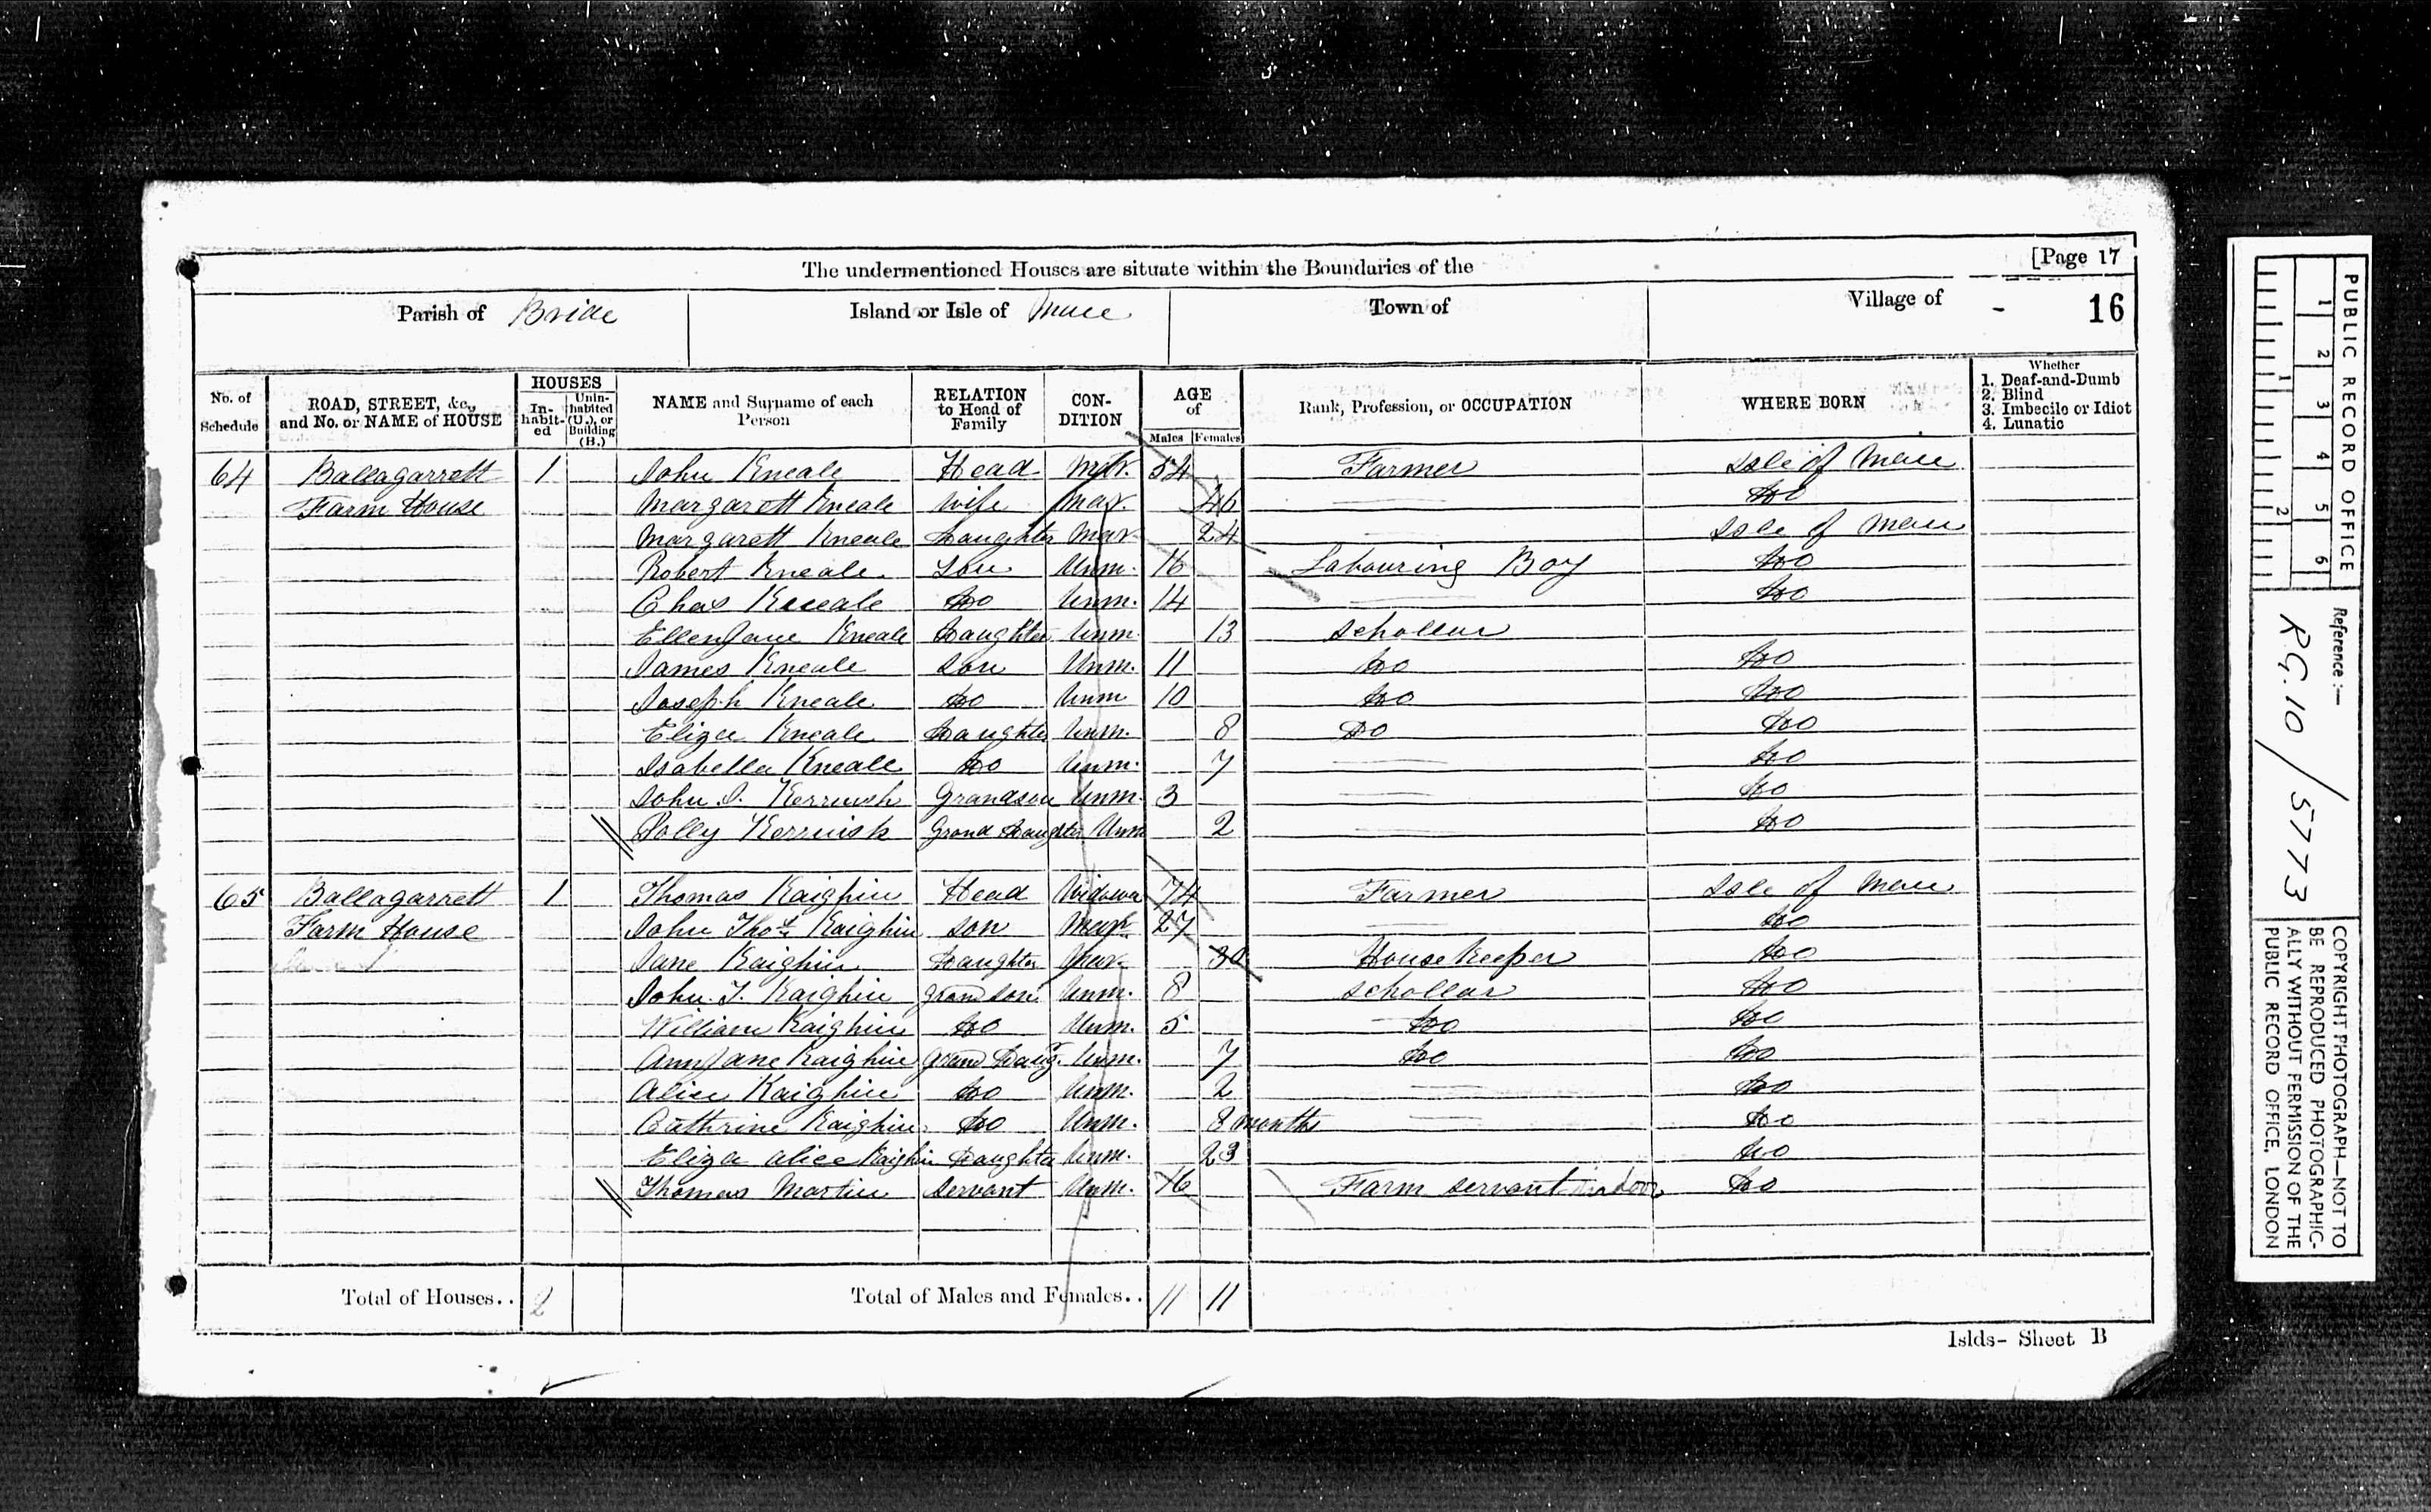 [Page 17
The undermentioned Houses are situate within the Boundaries of the
Parish of Bride Island or Isle of Man Town of Village of - 16
No. of Schedule ROAD, STREET, &c., and No. or NAME of HOUSE HOUSES Inhabit-ed Unin-habited (U.), or Building (B.) NAME and Surname of each Person RELATION to Head of Family CON-DITION AGE of Males Females Rank, Profession, or OCCUPATION WHERE BORN Whether 1. Deaf-and-Dumb 2. Blind 3. Imbecile or Idiot 4. Lunatic
64 Ballagarrett 1 John Kneale Head Mar. 54 Farmer Isle of Man
Farm House Margarett Kneale Wife Mar. 46 Do
Margarett Kneale Daughter Mar 24 Isle of Man
Robert Kneale Son Unm. 16 Labouring Boy Do
Chas Kneale Do Unm. 14 Do
Ellen Jane Kneale Daughter Unm 13 Schollar
James Kneale Son Unm. 11 Do Do
Joseph Kneale Do Unm 10 Do Do
Eliza Kneale Daughter Unm. 8 Do Do
Isabella Kneale Do Unm. 7 Do
John J. Kerruish Grandson Unm. 3 Do
Polly Kerruish Grand Daughter Unm 2 Do
65 Ballagarrett 1 Thomas Kaighin Head Widower 74 Farmer Isle of Man
Farm House John Thos. Kaighin Son Mar. 27 Do
Jane Kaighin Daughter Mar. 30 House Keeper Do
John. T. Kaighin Grand son Unm. 8 Schollar Do
William Kaighin Do Unm. 5 Do Do
Ann Jane Kaighin Grand Daug. Unm. 7 Do Do
Alice Kaighin Do Unm. 2 Do
Cathrine Kaighin Do Unm. 8 months Do
Eliza Alice Kaighin Daughter Unm. 23 Do
Thomas Martin Servant Unm. 16 Farm servant indoor Do
Total of Houses.. 2 Total of Males and Females.. 11 11
Islds- Sheet B
PUBLIC RECORD OFFICE
1 2 3 4 5 6
1 2
Reference:-
RG. 10 / 5773
COPYRIGHT PHOTOGRAPH—NOT TO
BE REPRODUCED PHOTOGRAPHIC-
ALLY WITHOUT PERMISSION OF THE
PUBLIC RECORD OFFICE, LONDON